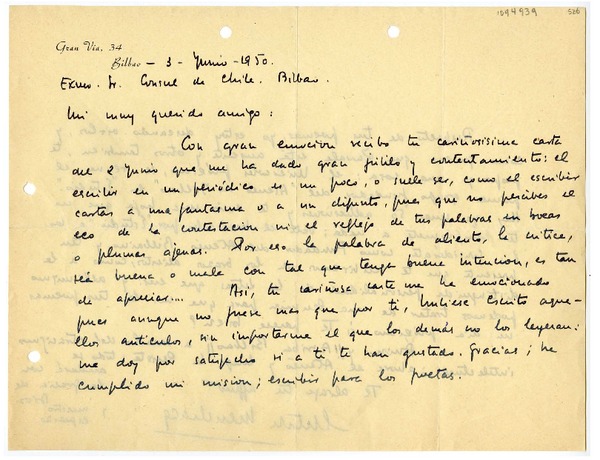 1094939
526
Gran Vía, 34
Bilbao - 3 - Junio - 1950.
Excmo. Sr. Consul de Chile. Bilbao.
Mi muy querido amigo:
Con gran emocion recibo tu cariñosissima carta
del 2 Junio que me ha dado gran júbilo y contentamiento: el
escribir en un periódico es un poco, o suele ser, como el escribir
cartas a una fantasma o a un difunto, pues que no percibes el
eco de la contestacion ni el reflejo de tus palabras en bocas
o plumas ajenas. Por eso la palabra de aliento, la critica,
seá buena o mala con tal que tenga buena intencion, es tan
de apreciar.... Asi, tu cariñosa carta me ha emocionado
pues aunque no fuese mas que por ti, hubiese escrito aque-
llos articulos, sin importarme el que los demás no los leyeran:
me doy por satisfecho si a ti te han gustado. Gracias; he
cumplido mi mision; escribir para los poetas.